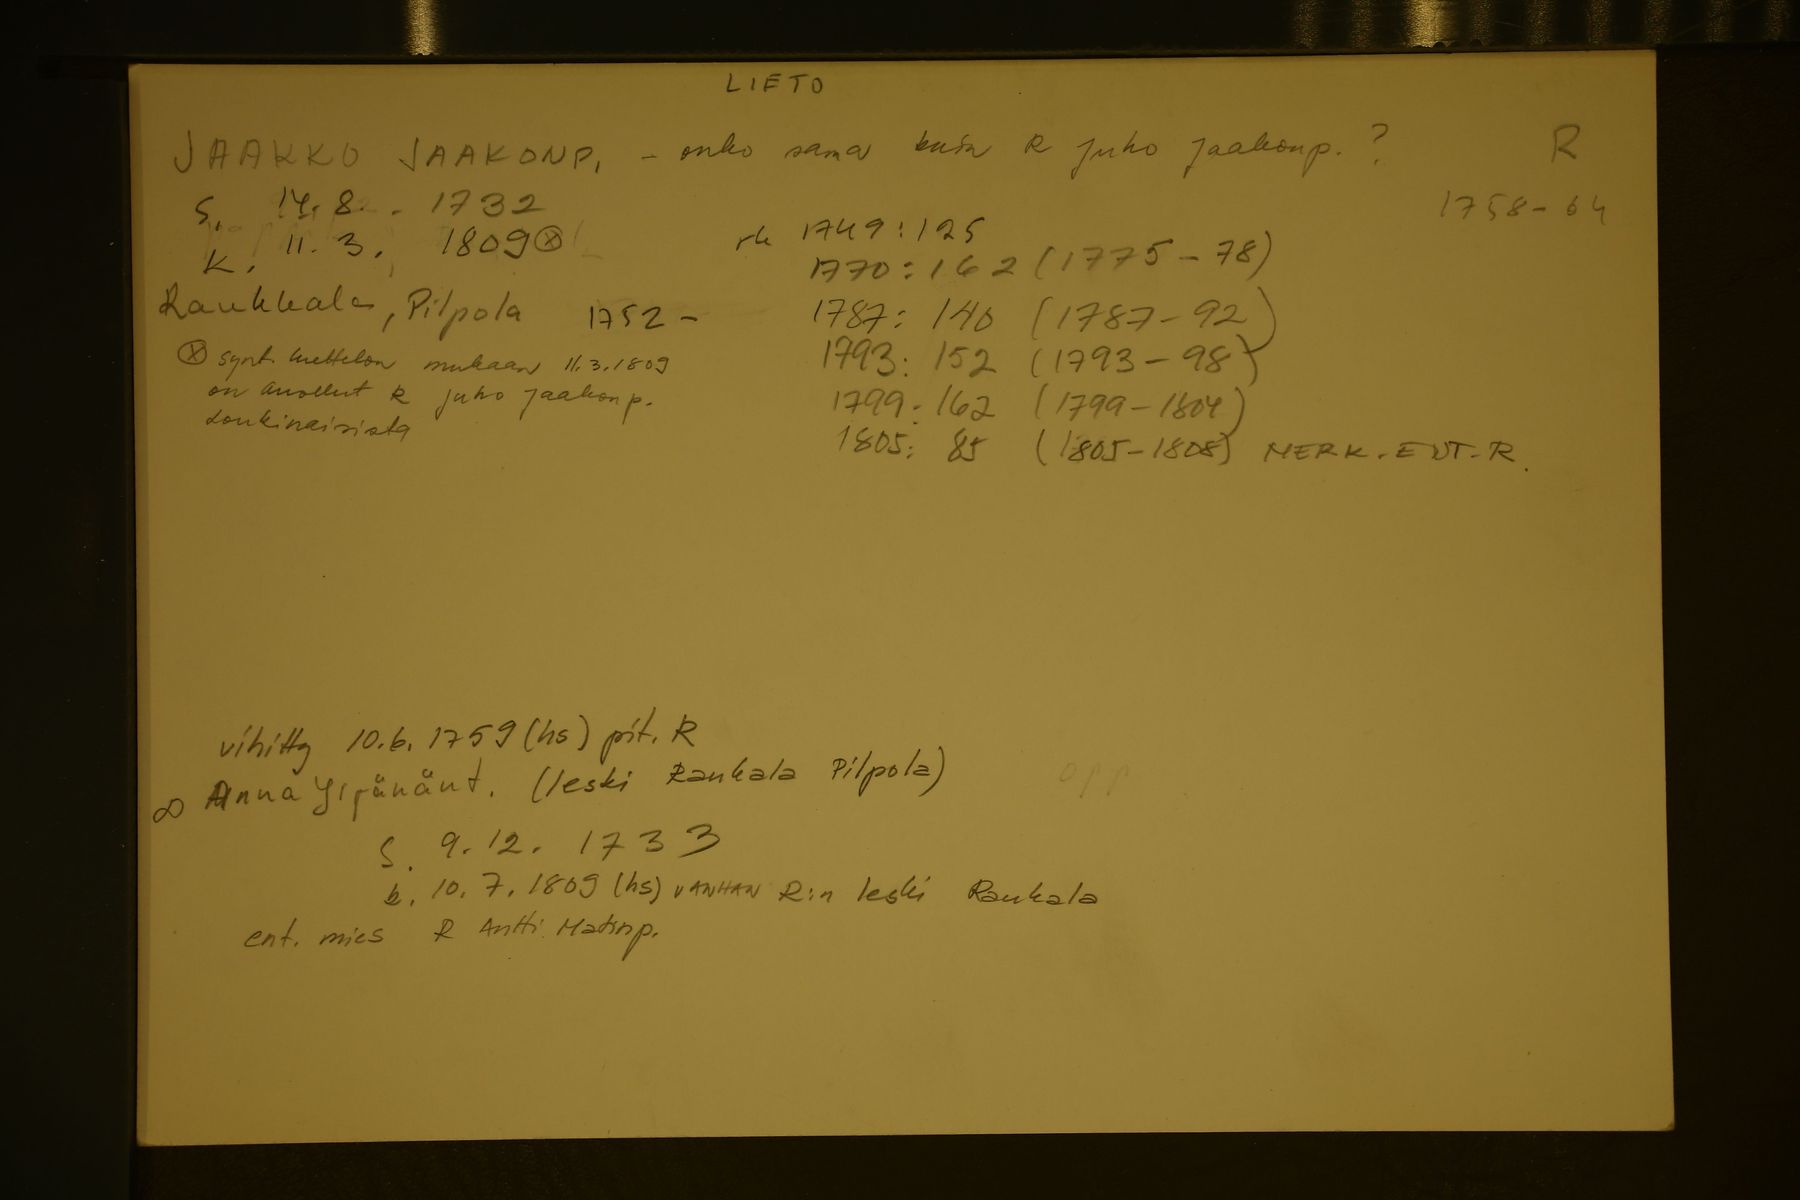 LIETO
JAAKKO JAAKONP. - onko sama kuin R Juho Jaakonp. ? R
1758-64
s. 14.8. 1732
k. 11.3. 1809 ⊗
rk 1749:125
1770:162 (1775-78)
Raukkala, Pilpola 1752-
1787: 140 (1787-92)
1793: 152 (1793-98)
1799: 162 (1799-1804)
1805: 85 (1805-1808) MERK. ENT. R.
⊗ synt. luettelon mukaan 11.3.1809
on kuollut R Juho Jaakonp.
Loukinaisista
vihitty 10.6.1759 (hs) pit. R
∞ Anna Yrjänänt. (leski Raukala Pilpola)
opp
s. 9.12. 1733
k. 10.7.1809 (hs) VANHAN R:n leski Raukala
ent. mies R Antti Matinp.